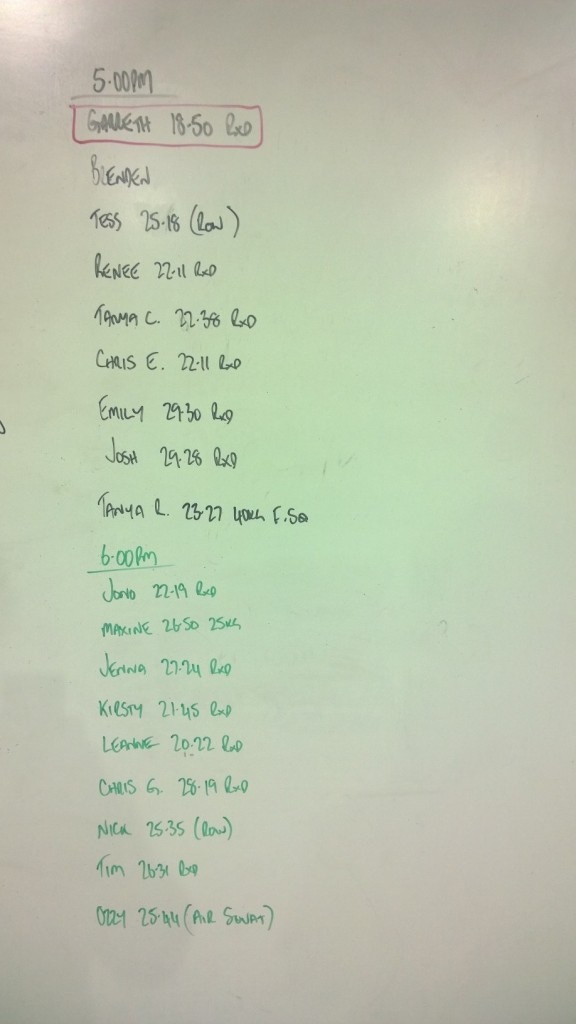 5.00PM
GARRETH 18.50 RxD
BRENDEN
TESS 25.18 (ROW)
RENEE 22.11 RxD
TANYA C. 22.38 RxD
CHRIS E. 22.11 RxD
EMILY 29.30 RxD
JOSH 29.28 RxD
TANYA R. 23.27 40KG F.SQ
6.00PM
JONO 22.19 RxD
MAXINE 26.50 25KG
JENNA 27.24 RxD
KIRSTY 21.45 RxD
LEANNE 20.22 RxD
CHRIS G. 28.19 RxD
NICK 25.35 (ROW)
TIM 26.31 RxD
OZZY 25.44 (AIR SQUAT)